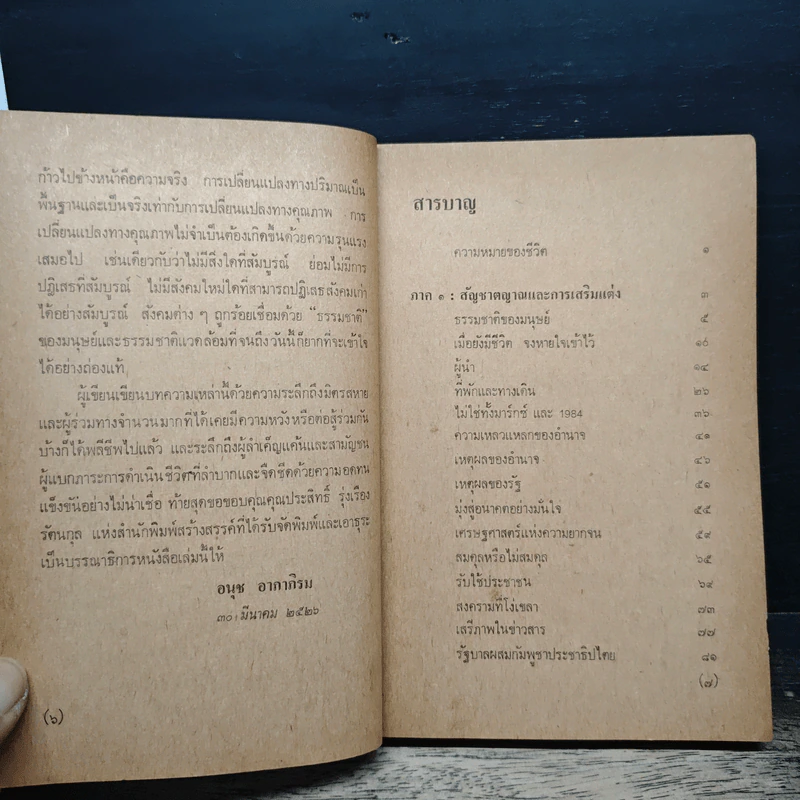 ก้าวไปข้างหน้าคือความจริง การเปลี่ยนแปลงทางปริมาณเป็น
พื้นฐานและเป็นจริงเท่ากับการเปลี่ยนแปลงทางคุณภาพ การ
เปลี่ยนแปลงทางคุณภาพไม่จำเป็นต้องเกิดขึ้นด้วยความรุนแรง
เสมอไป เช่นเดียวกับว่าไม่มีสิ่งใดที่สมบูรณ์ ย่อมไม่มีการ
ปฏิเสธที่สัมบูรณ์ ไม่มีสังคมใหม่ใดที่สามารถปฏิเสธสังคมเก่า
ได้อย่างสัมบูรณ์ สังคมต่าง ๆ ถูกร้อยเชื่อมด้วย “ธรรมชาติ”
ของมนุษย์และธรรมชาติแวดล้อมที่จนถึงวันนี้ก็ยากที่จะเข้าใจ
ได้อย่างถ่องแท้
ผู้เขียนเขียนบทความเหล่านี้ด้วยความระลึกถึงมิตรสหาย
และผู้ร่วมทางจำนวนมากที่ได้เคยมีความหวังหรือต่อสู้ร่วมกัน
บ้างก็ได้พลีชีพไปแล้ว และระลึกถึงผู้ลำเค็ญแค้นและสามัญชน
ผู้แบกภาระการดำเนินชีวิตที่ลำบากและจืดชืดด้วยความอดทน
แข็งขันอย่างไม่น่าเชื่อ ท้ายสุดขอขอบคุณคุณประสิทธิ์ รุ่งเรือง
รัตนกุล แห่งสำนักพิมพ์สร้างสรรค์ที่ได้รับจัดพิมพ์และเอาธุระ
เป็นบรรณาธิการหนังสือเล่มนี้ให้
อนุช อาภาภิรม
๓๐ มีนาคม ๒๕๒๖
(๖)
สารบาญ
ความหมายของชีวิต ๑
ภาค ๑ : สัญชาตญาณและการเสริมแต่ง ๓
ธรรมชาติของมนุษย์ ๕
เมื่อยังมีชีวิต จงหายใจเข้าไว้ ๑๐
ผู้นำ ๑๔
ที่พักและทางเดิน ๒๖
ไม่ใช่ทั้งมาร์กซ์ และ 1984 ๓๖
ความเหลวแหลกของอำนาจ ๔๑
เหตุผลของอำนาจ ๔๖
เหตุผลของรัฐ ๕๑
มุ่งสู่อนาคตอย่างมั่นใจ ๕๕
เศรษฐศาสตร์แห่งความยากจน ๕๙
สมดุลหรือไม่สมดุล ๖๕
รับใช้ประชาชน ๖๙
สงครามที่โง่เขลา ๗๓
เสรีภาพในข่าวสาร ๗๗
รัฐบาลผสมกัมพูชาประชาธิปไตย ๘๑
(๗)